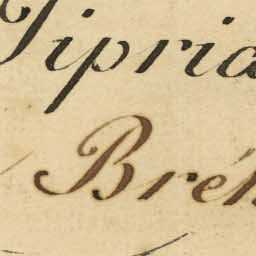 Tipria
Bréh